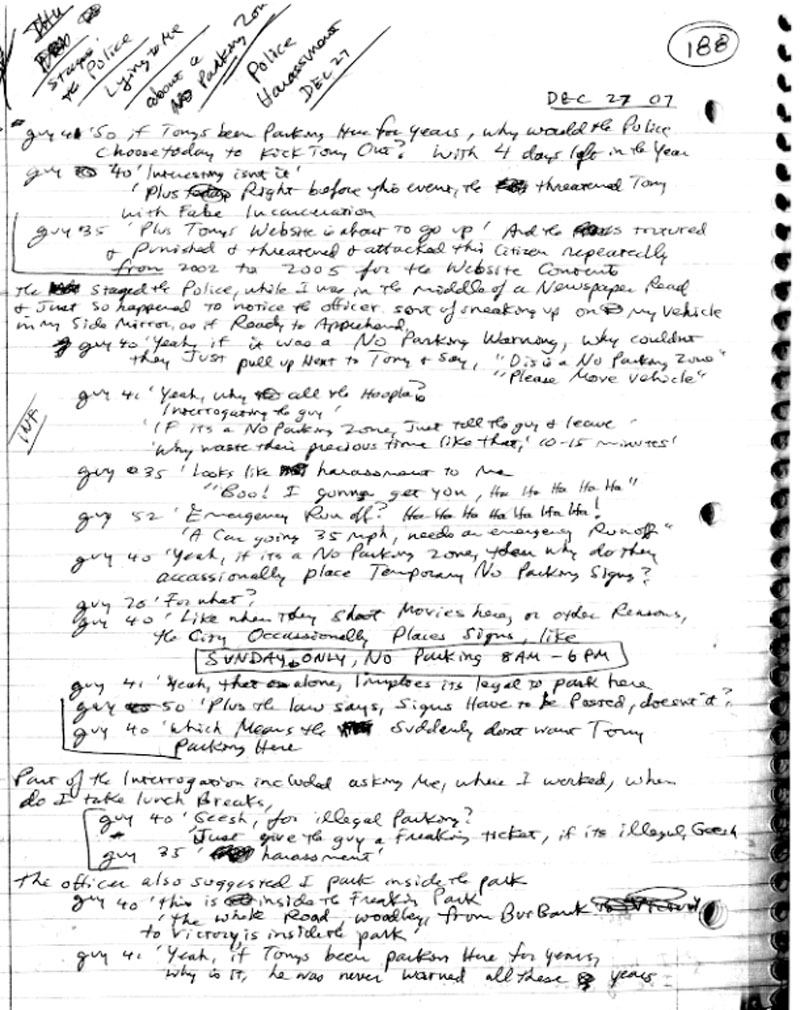 staged
the Police
Lying to Me
about a
No Parking Zone
Police
Harassment
DEC 27
188
DEC 27 07
guy 41 'So if Tonys been Parking Here for years, why would the Police
choose today to kick Tony Out? With 4 days left in the Year
guy 40 'Interesting isnt it'
'Plus Right before this event, the threatened Tony
with False Incarceration
guy 35 'Plus Tonys Website is about to go up' And the tortured
& Punished & threatened & attacked this Citizen repeatedly
from 2002 to 2005 for the Website Contents
the staged the Police, while I was in the middle of a Newspaper Read
& Just so happened to notice the officer sort of sneaking up on my vehicle
in my Side Mirror, as if Ready to Apprehend
guy 40 'Yeah, if it was a No Parking Warning, why couldnt
they Just pull up Next to Tony & Say, "Dis is a No Parking Zone"
"Please Move vehicle"
guy 41 'Yeah, why all the Hoopla?
Interrogating the guy'
'IF its a No Parking Zone, Just tell the guy & leave'
'Why waste their precious time like that,' 10-15 minutes'
INF
guy 35 'Looks like harassment to me
"Boo! I gonna get you, Ha Ha Ha Ha Ha"
guy 52 'Emergency Run off? Ha Ha Ha Ha Ha Ha Ha!
'A Car going 35 mph, needs an emergency Runoff"
guy 40 'Yeah, if its a No Parking Zone, then why do they
accassionally place Temporary No Parking Signs?
guy 20 'For what?
guy 40 'Like when They Shoot Movies here, or other Reasons,
the City Occassionally Places Signs, like
SUNDAY ONLY, No Parking 8AM - 6PM
guy 41 'Yeah, that alone, Implies its legal to park here
guy 50 'Plus the law says, Signs Have to be Posted, doesn't it?
guy 40 'which Means the suddenly dont want Tony
Parking Here
Part of the Interrogation included asking Me, where I worked, when
do I take lunch Breaks,
guy 40 'Geesh, for illegal Parking?
'Just give the guy a Freaking ticket, if its illegal, Geesh
guy 35 ' harassment'
the officer also suggested I park inside the park
guy 40 'this is inside the Freakin Park
'the whole Road, woodley, from Burbank
to Victory is inside the park'
guy 41 'Yeah, if Tonys been parkin Here for years,
why is it, he was never warned all these years